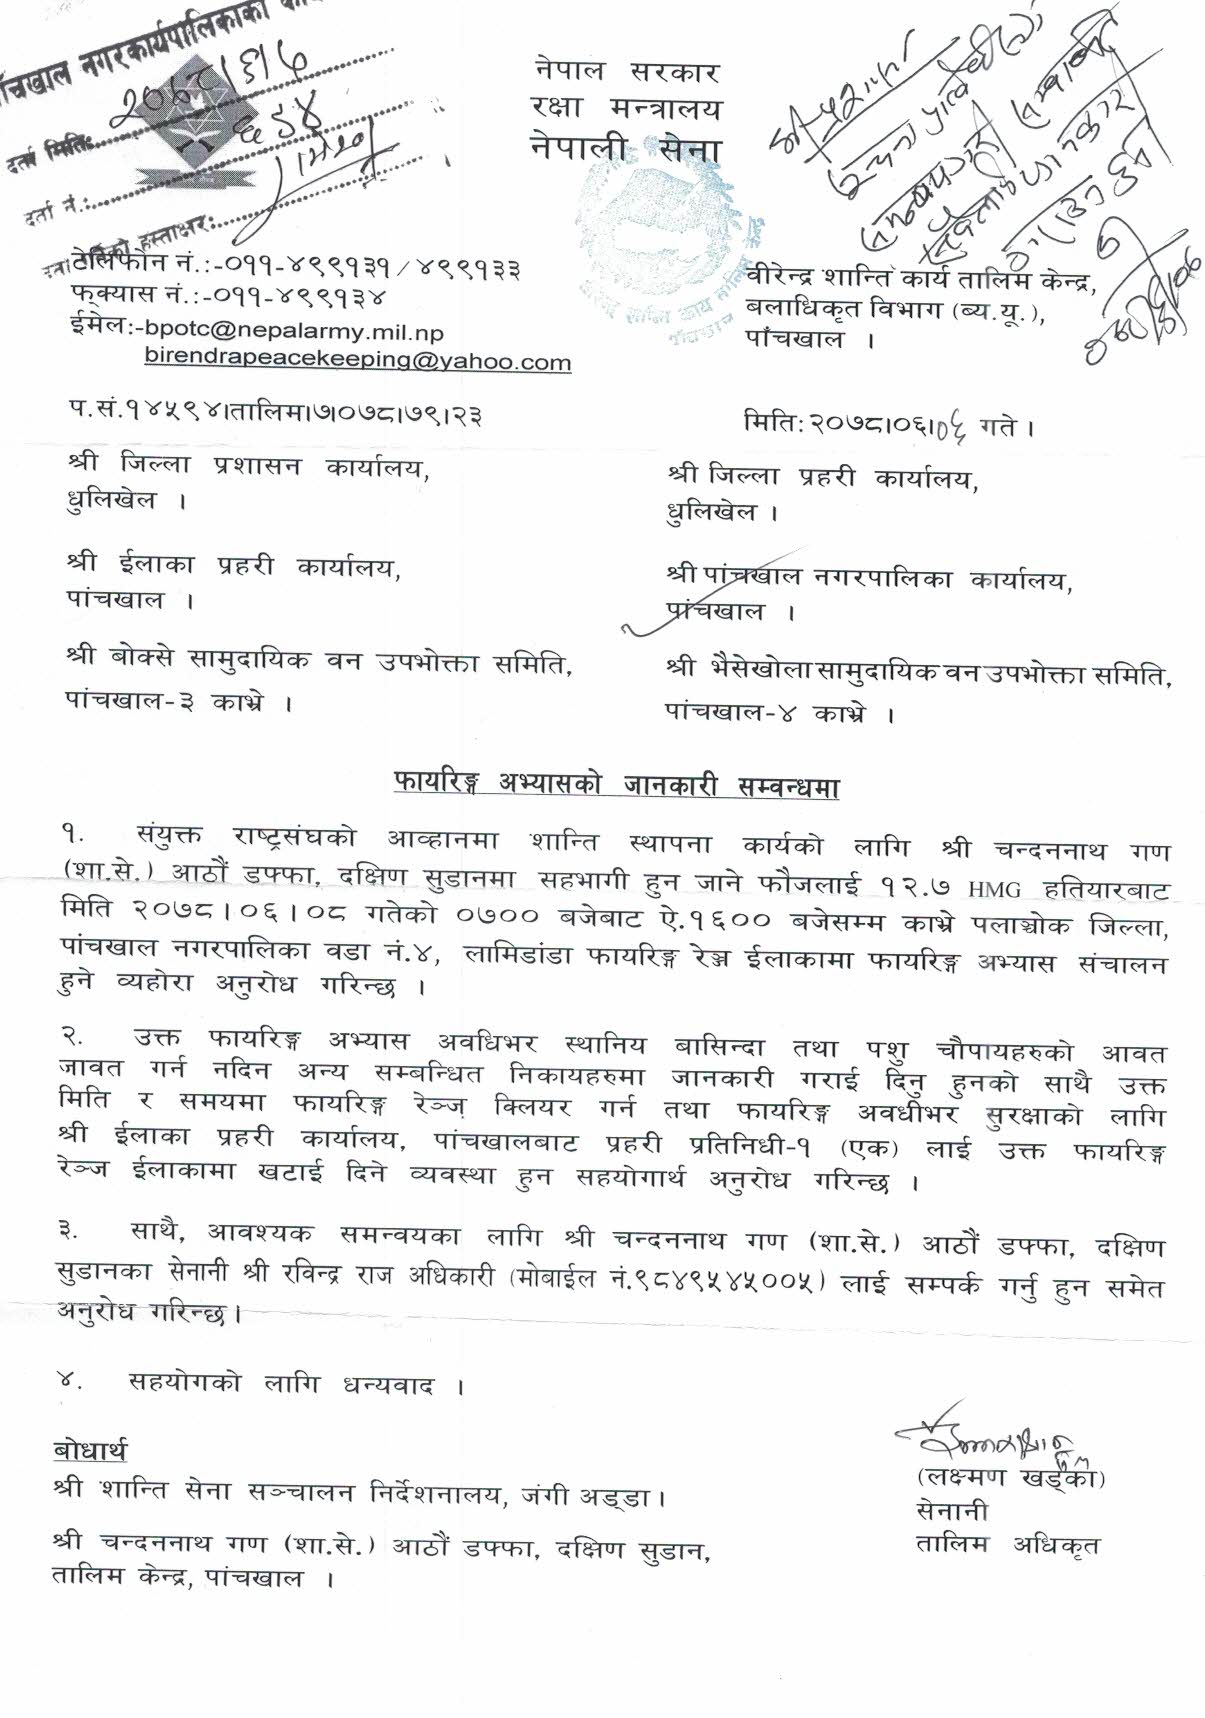 पाँचखाल नगरकार्यपालिकाको
दर्ता मितिः
दर्ता नं.:
हस्ताक्षर:
नेपाल सरकार
रक्षा मन्त्रालय
नेपाली सेना
टेलिफोन नं.:-०११-४९९१३१/४९९१३३
फ्क्यास नं.:-०११-४९९१३४
ईमेल:-bpotc@nepalarmy.mil.np
birendrapeacekeeping@yahoo.com
वीरेन्द्र शान्ति कार्य तालिम केन्द्र,
बलाधिकृत विभाग (ब्य.यू.),
पाँचखाल ।
प.सं.१४५९४।तालिम।७।०७८।७९।२३
मिति: २०७८।०६।०६ गते ।
श्री जिल्ला प्रशासन कार्यालय,
धुलिखेल ।
श्री जिल्ला प्रहरी कार्यालय,
धुलिखेल ।
श्री ईलाका प्रहरी कार्यालय,
पांचखाल ।
श्री पांचखाल नगरपालिका कार्यालय,
पांचखाल ।
श्री बोक्से सामुदायिक वन उपभोक्ता समिति,
पांचखाल-३ काभ्रे ।
श्री भैसेखोला सामुदायिक वन उपभोक्ता समिति,
पांचखाल-४ काभ्रे ।
फायरिङ्ग अभ्यासको जानकारी सम्वन्धमा
१. संयुक्त राष्ट्रसंघको आव्हानमा शान्ति स्थापना कार्यको लागि श्री चन्दननाथ गण
(शा.से.) आठौं डफ्फा, दक्षिण सुडानमा सहभागी हुन जाने फौजलाई १२.७ HMG हतियारबाट
मिति २०७८।०६।०८ गतेको ०७०० बजेबाट ऐ.१६०० बजेसम्म काभ्रे पलाञ्चोक जिल्ला,
पांचखाल नगरपालिका वडा नं.४, लामिडांडा फायरिङ्ग रेञ्ज ईलाकामा फायरिङ्ग अभ्यास संचालन
हुने व्यहोरा अनुरोध गरिन्छ ।
२. उक्त फायरिङ्ग अभ्यास अवधिभर स्थानिय बासिन्दा तथा पशु चौपायहरुको आवत
जावत गर्न नदिन अन्य सम्बन्धित निकायहरुमा जानकारी गराई दिनु हुनको साथै उक्त
मिति र समयमा फायरिङ्ग रेञ्ज क्लियर गर्न तथा फायरिङ्ग अवधीभर सुरक्षाको लागि
श्री ईलाका प्रहरी कार्यालय, पांचखालबाट प्रहरी प्रतिनिधी-१ (एक) लाई उक्त फायरिङ्ग
रेञ्ज ईलाकामा खटाई दिने व्यवस्था हुन सहयोगार्थ अनुरोध गरिन्छ ।
३. साथै, आवश्यक समन्वयका लागि श्री चन्दननाथ गण (शा.से.) आठौं डफ्फा, दक्षिण
सुडानका सेनानी श्री रविन्द्र राज अधिकारी (मोबाईल नं.९८४९५४५००५) लाई सम्पर्क गर्नु हुन समेत
अनुरोध गरिन्छ।
४. सहयोगको लागि धन्यवाद ।
बोधार्थ
श्री शान्ति सेना सञ्चालन निर्देशनालय, जंगी अड्डा।
श्री चन्दननाथ गण (शा.से.) आठौं डफ्फा, दक्षिण सुडान,
तालिम केन्द्र, पांचखाल ।
(लक्ष्मण खड्का)
सेनानी
तालिम अधिकृत